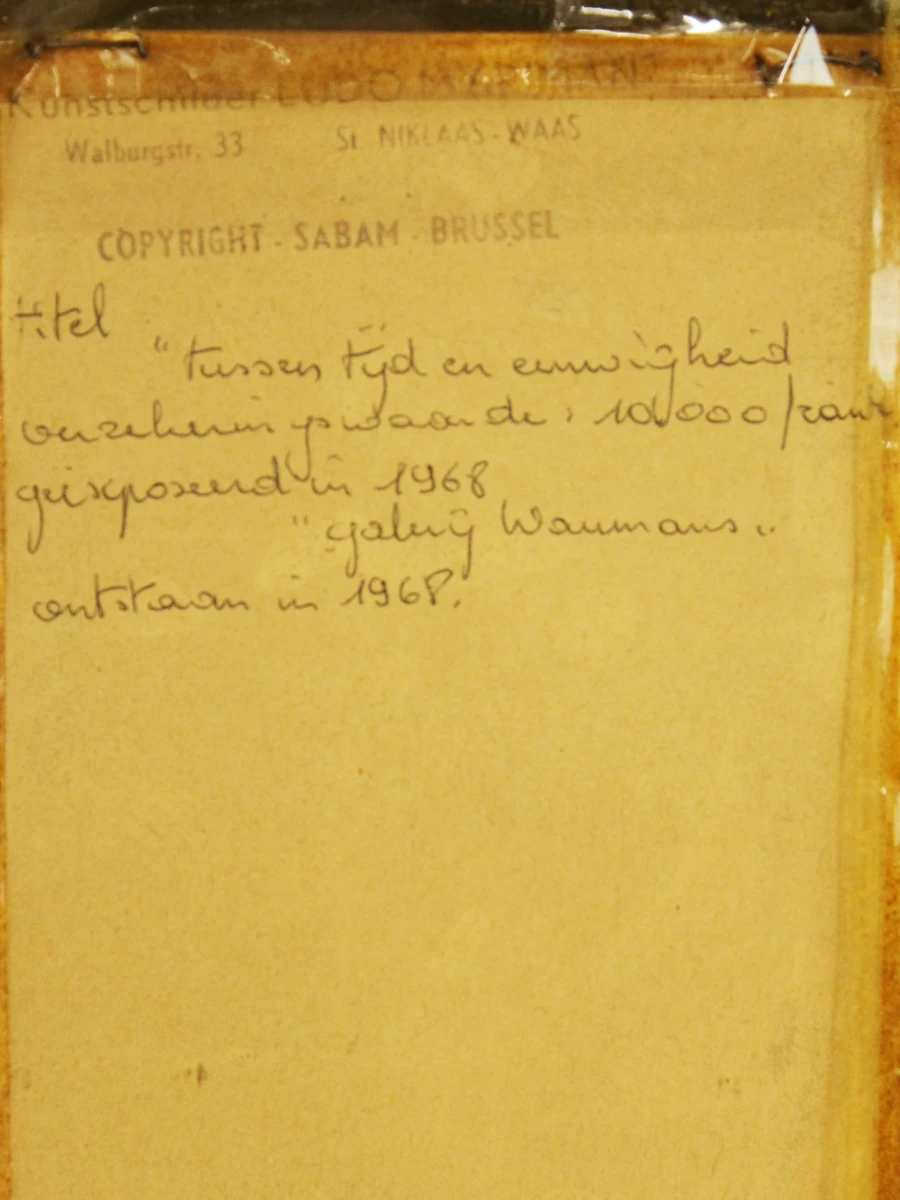 Kunstschilder LUDO
Walburgstr. 33 St NIKLAAS - WAAS
COPYRIGHT - SABAM - BRUSSEL
titel
"tussen tijd en eeuwigheid
verzekeringswaarde: 10.000/
geëxposeerd in 1968
"galerij Waumans"
ontstaan in 1968.